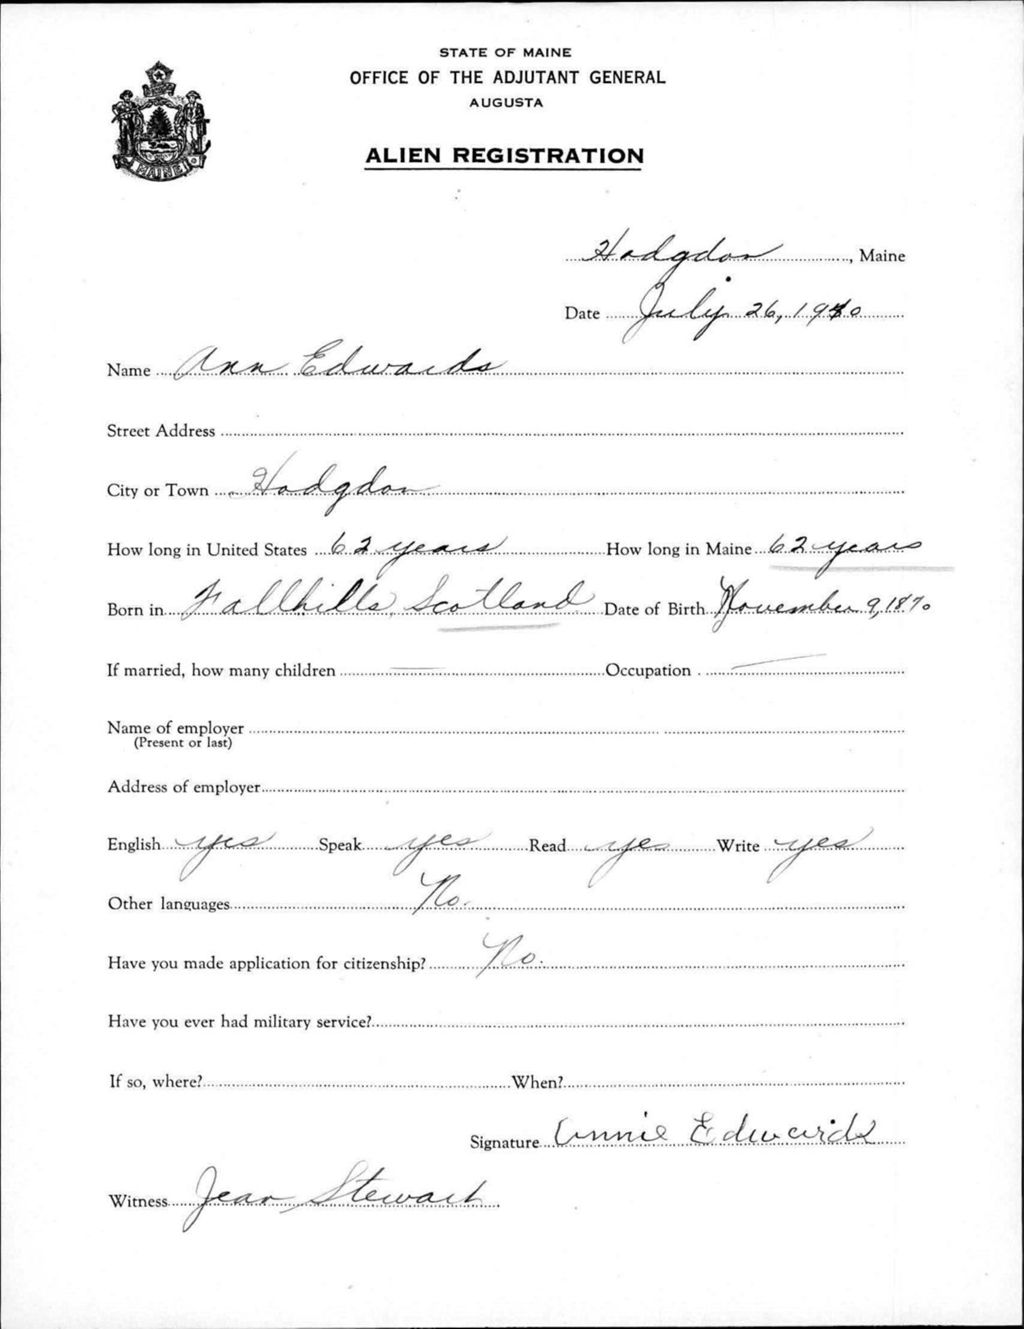 STATE OF MAINE
OFFICE OF THE ADJUTANT GENERAL
AUGUSTA
ALIEN REGISTRATION
MAINE
Hodgdon, Maine
Date July 26, 1940
Name Ann Edwards
Street Address
City or Town Hodgdon
How long in United States 62 years How long in Maine 62 years
Born in Fallhills, Scotland Date of Birth November 9, 1870
If married, how many children Occupation
Name of employer
(Present or last)
Address of employer
English yes Speak yes Read yes Write yes
Other languages No.
Have you made application for citizenship? No.
Have you ever had military service?
If so, where? When?
Signature Annie Edwards
Witness Jean Stewart